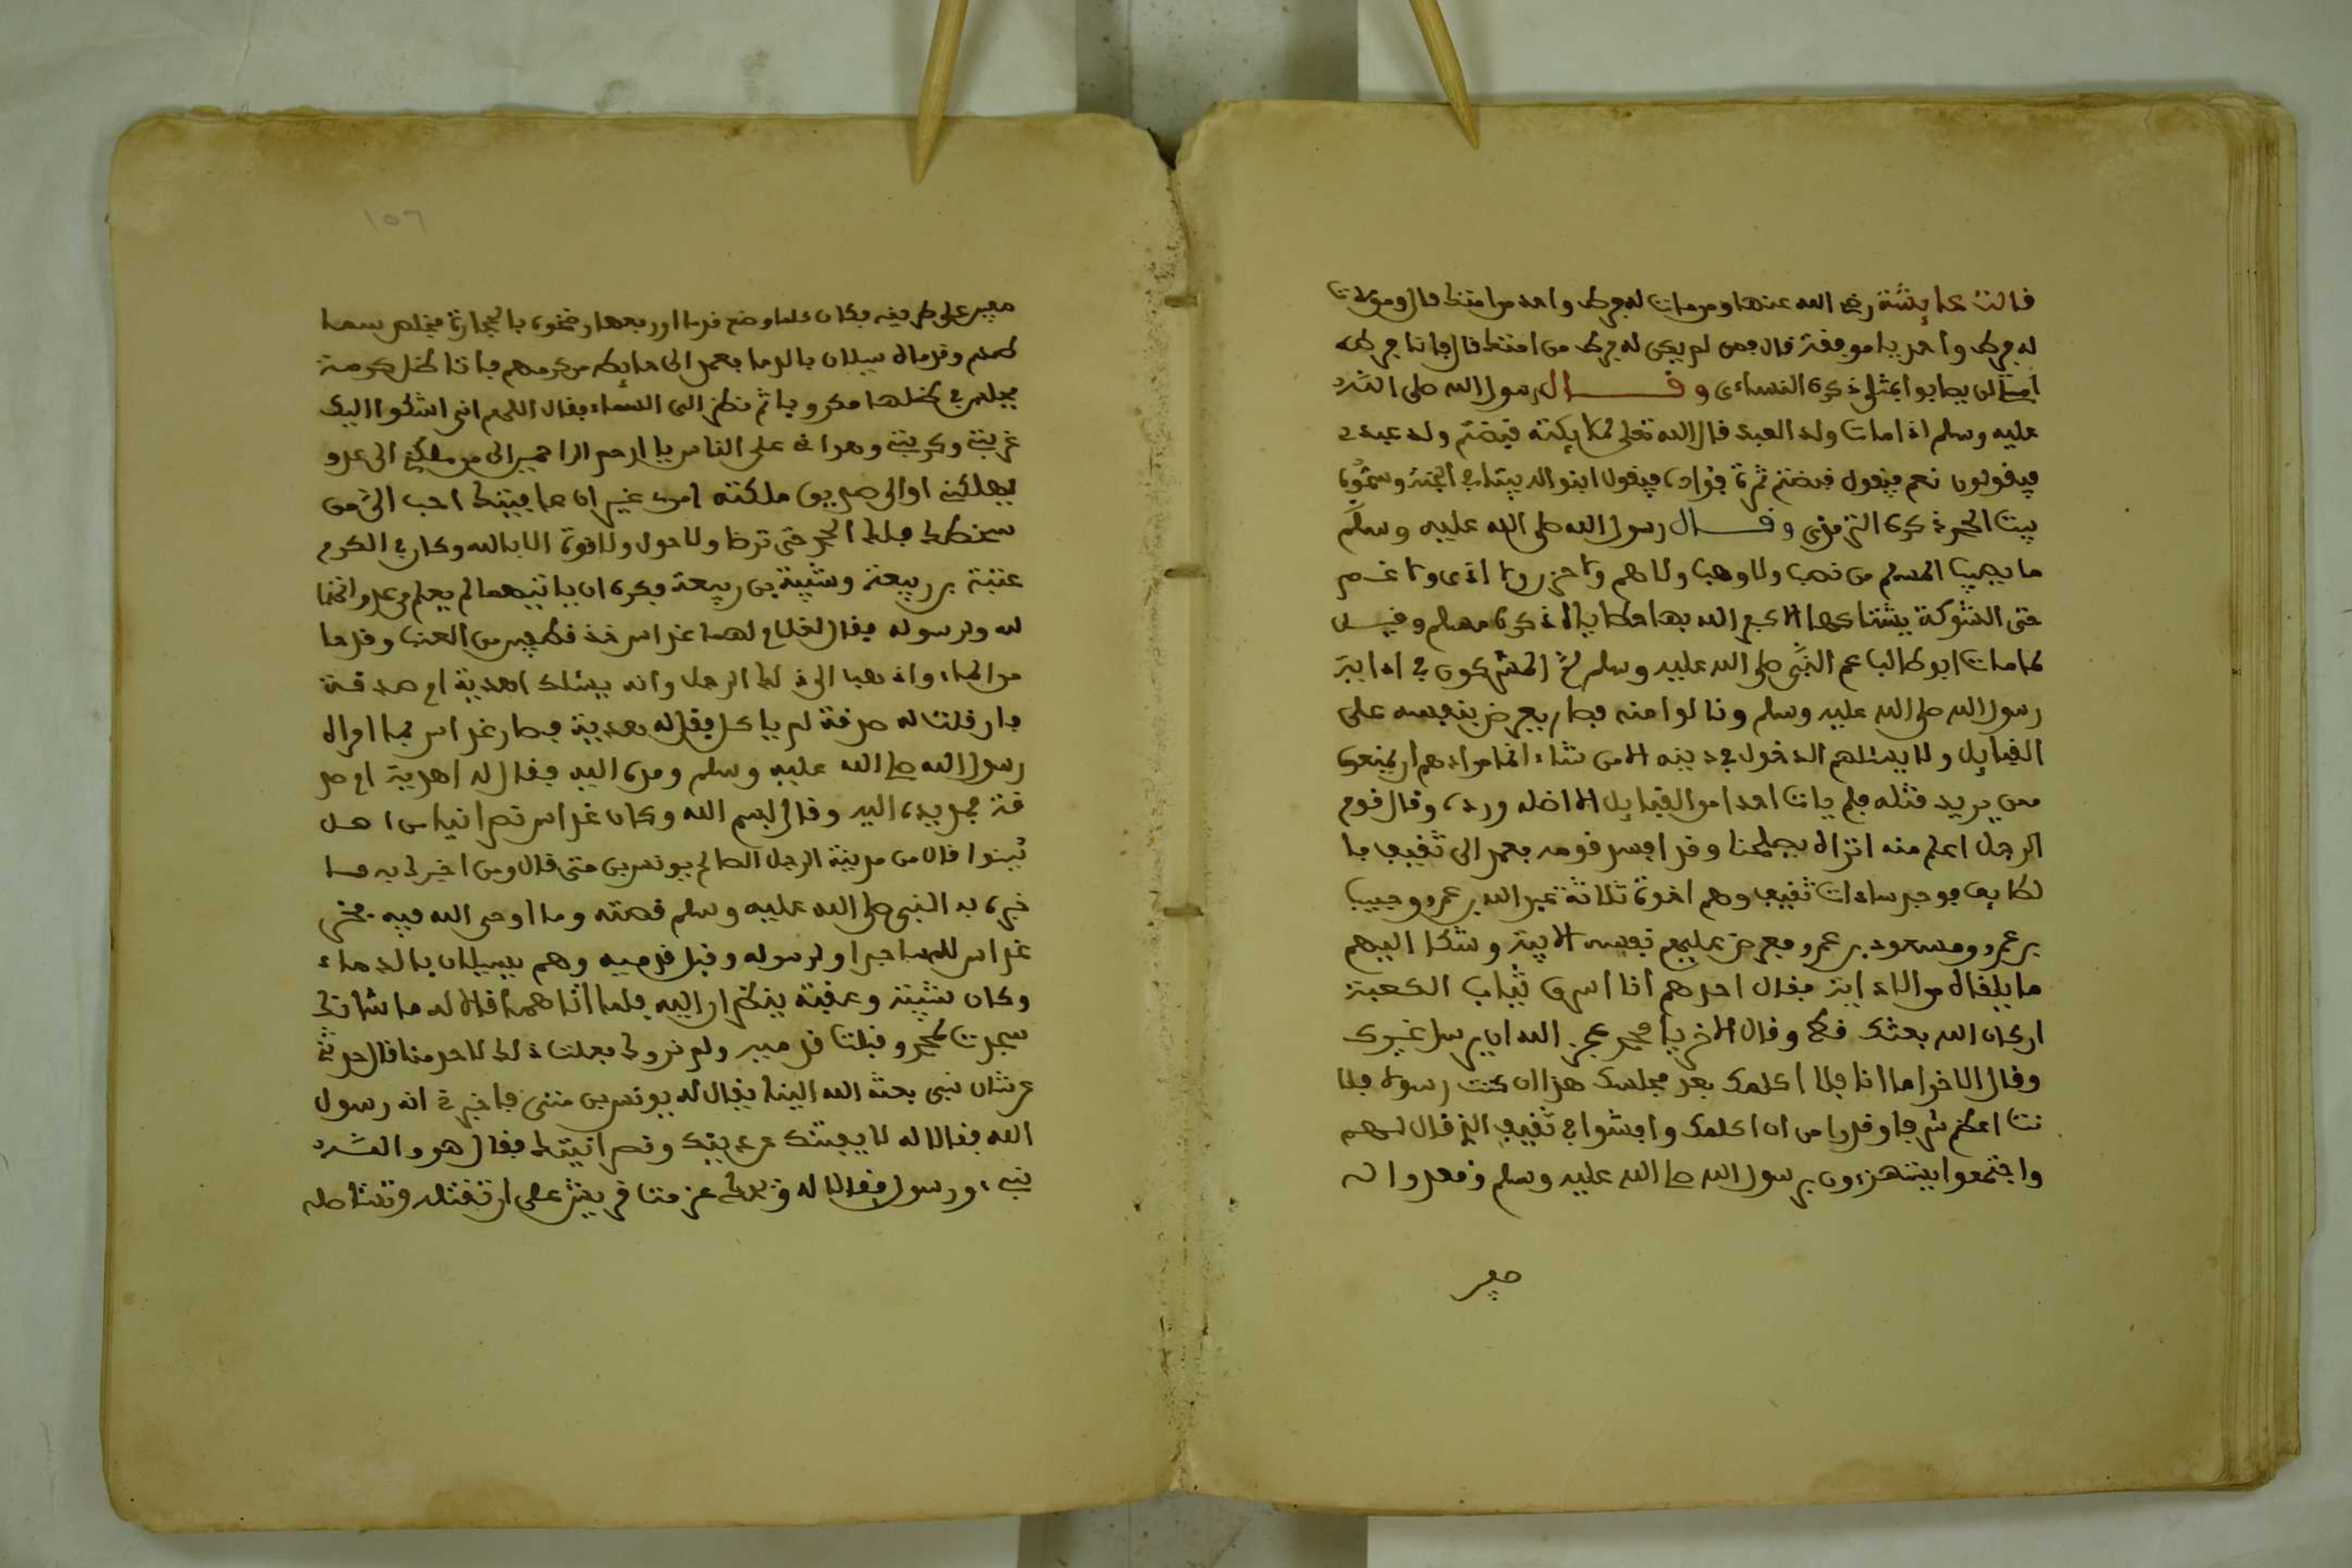 قالت عايشة رضي الله عنها ومن مات له فرط واحد من امتك قال ومن مات
له فرط واحد يا موفقة قال فمن لم يكن له فرط من امتك قال فانا فرط
امتى لن يصابوا بمثلى ذكره النساءى وقال رسول الله صلى الله
عليه وسلم اذا مات ولد العبد قال الله تعلى لملايكته قبضتم ولد عبدى
فيقولون نعم فيقول قبضتم ثمرة فؤاده فيقول ابنوا له بيتا فى الجنة وسموه
بيت الحمد ذكره الترمذى وقال رسول الله صلى الله عليه وسلم
ما يصيب المسلم من نصب ولا وصب ولا هم ولا حزن ولا اذى ولا غم
حتى الشوكة يشتاكها الا كفر الله بها خطاياه ذكره مسلم وقيل
لما مات ابو طالب عم النبى صلى الله عليه وسلم لج المشركون فى اذاية
رسول الله صلى الله عليه وسلم ونالوا منه فصار يعرض بنفسه على
القبايل ولا يسئلهم الدخول فى دينه الا من شاء انما مراده ان يمنعوه
ممن يريد قتله فلم يات احدا من القبايل الا اخله ورده وقال قوم
الرجل اعلم منه اتراه يصلحنا وقد افسد قومه فعمد الى ثقيف با
لطايف فوجد سادات ثقيف وهم اخوة ثلاثة عبد الله بن عمرو وحبيب
بن عمرو ومسعود بن عمرو فعرض عليهم نفسه الابية وشكا اليهم
ما يلقاه من الاذاية فقال احدهم انا اسرق ثياب الكعبة
ان كان الله بعثك قط وقال الاخر يا محمد عجز الله ان يرسل غيرك
وقال الاخر اما انا فلا اكلمك بعد مجلسك هذا ان كنت رسولا فلا
نت اعظم شرفا وقدرا من ان اكلمك وافشوا فى ثقيف الذى قال لهم
واجتمعوا يستهزءون برسول الله صلى الله عليه وسلم وقعدوا له
صفير
١٥٦
صفين على طريقه فكان كلما وضع قدما او رفعها رضخوه بالحجارة فخلص منها
منهم وقدماه يسيلان بالدما فعمد الى حايط من كرمهم فاتا ظل كرمة
فجلس فى ظلها مكروبا ثم نظر الى السماء فقال اللهم انى اشكوا اليك
غربتى وكربتى وهوانى على الناس يا ارحم الراحمين الى من تكلنى الى عدو
يهلكنى او الى صديق ملكته امرى غير ان عافيتك احب الى من
سخطك فلك الحمد حتى ترضا ولا حول ولا قوة الا بالله وكان فى الكرم
عتبة بن ربيعة وشيبة بن ربيعة فكره ان ياتيهما لم يعلم من عداوتهما
لله ولرسوله فقال لغلام لهما عداس خذ قطفين من العنب وقدحا
من الماء واذهب الى ذلك الرجل وانه يسئلك اهدية ام صدقة
فان قلت له صدقة لم ياكل فقل له هدية فصار عداس بها امراه
رسول الله صلى الله عليه وسلم ومده اليه فقال له اهدية ام صد
قة فمد يده اليه وقال بسم الله وكان عداس نصرانيا من اهل
نينوا قال من مدينة الرجل الصالح يونس بن متى قال ومن اخبرك به فا
خبره به النبى صلى الله عليه وسلم قصته وما اوحى الله فيه فخر
عداس لله ساجدا ولرسوله وقبل قدميه وهم يسيلان بالدماء
وكان شيبة وعتبة ينظران اليه فلما اتاهما قالا له ما شانك
سجدت لمحمد وقبلت قدميه ولم نروك فعلت ذلك لاحد منا قال حدثنى
عن شان نبى بعثه الله الينا يقال له يونس بن متى فاخبرنى انه رسول
الله فقالا له لا يفتنك عن دينك ونصرانيتك فقال هو والله
نبى ورسول فقالا له ويلك عزمت قريش على ان تقتله وتستاصله